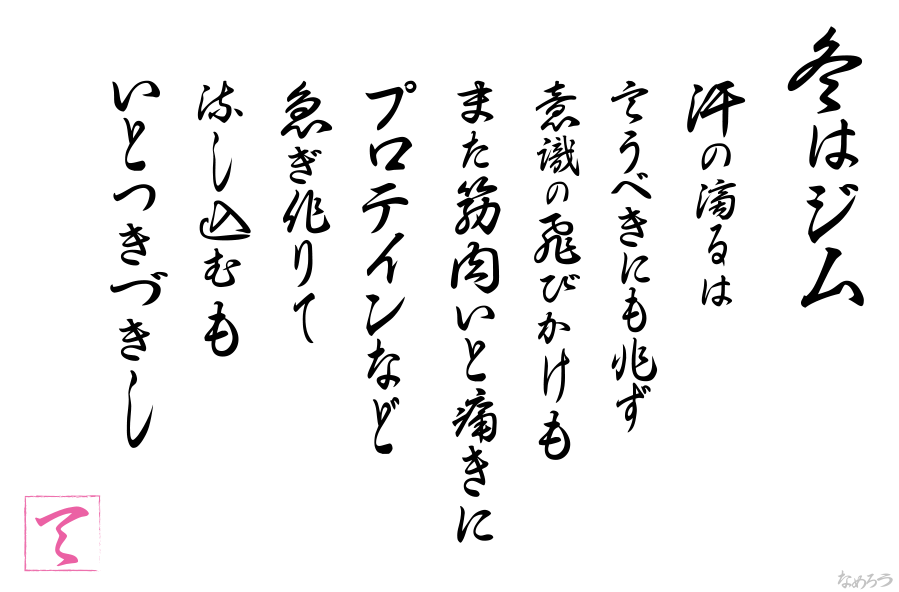 冬はジム
汗の滴るは
言うべきにも非ず
意識の飛びかけも
また筋肉いと痛きに
プロテインなど
急ぎ作りて
流し込むも
いとつきづきし
て
なめろう